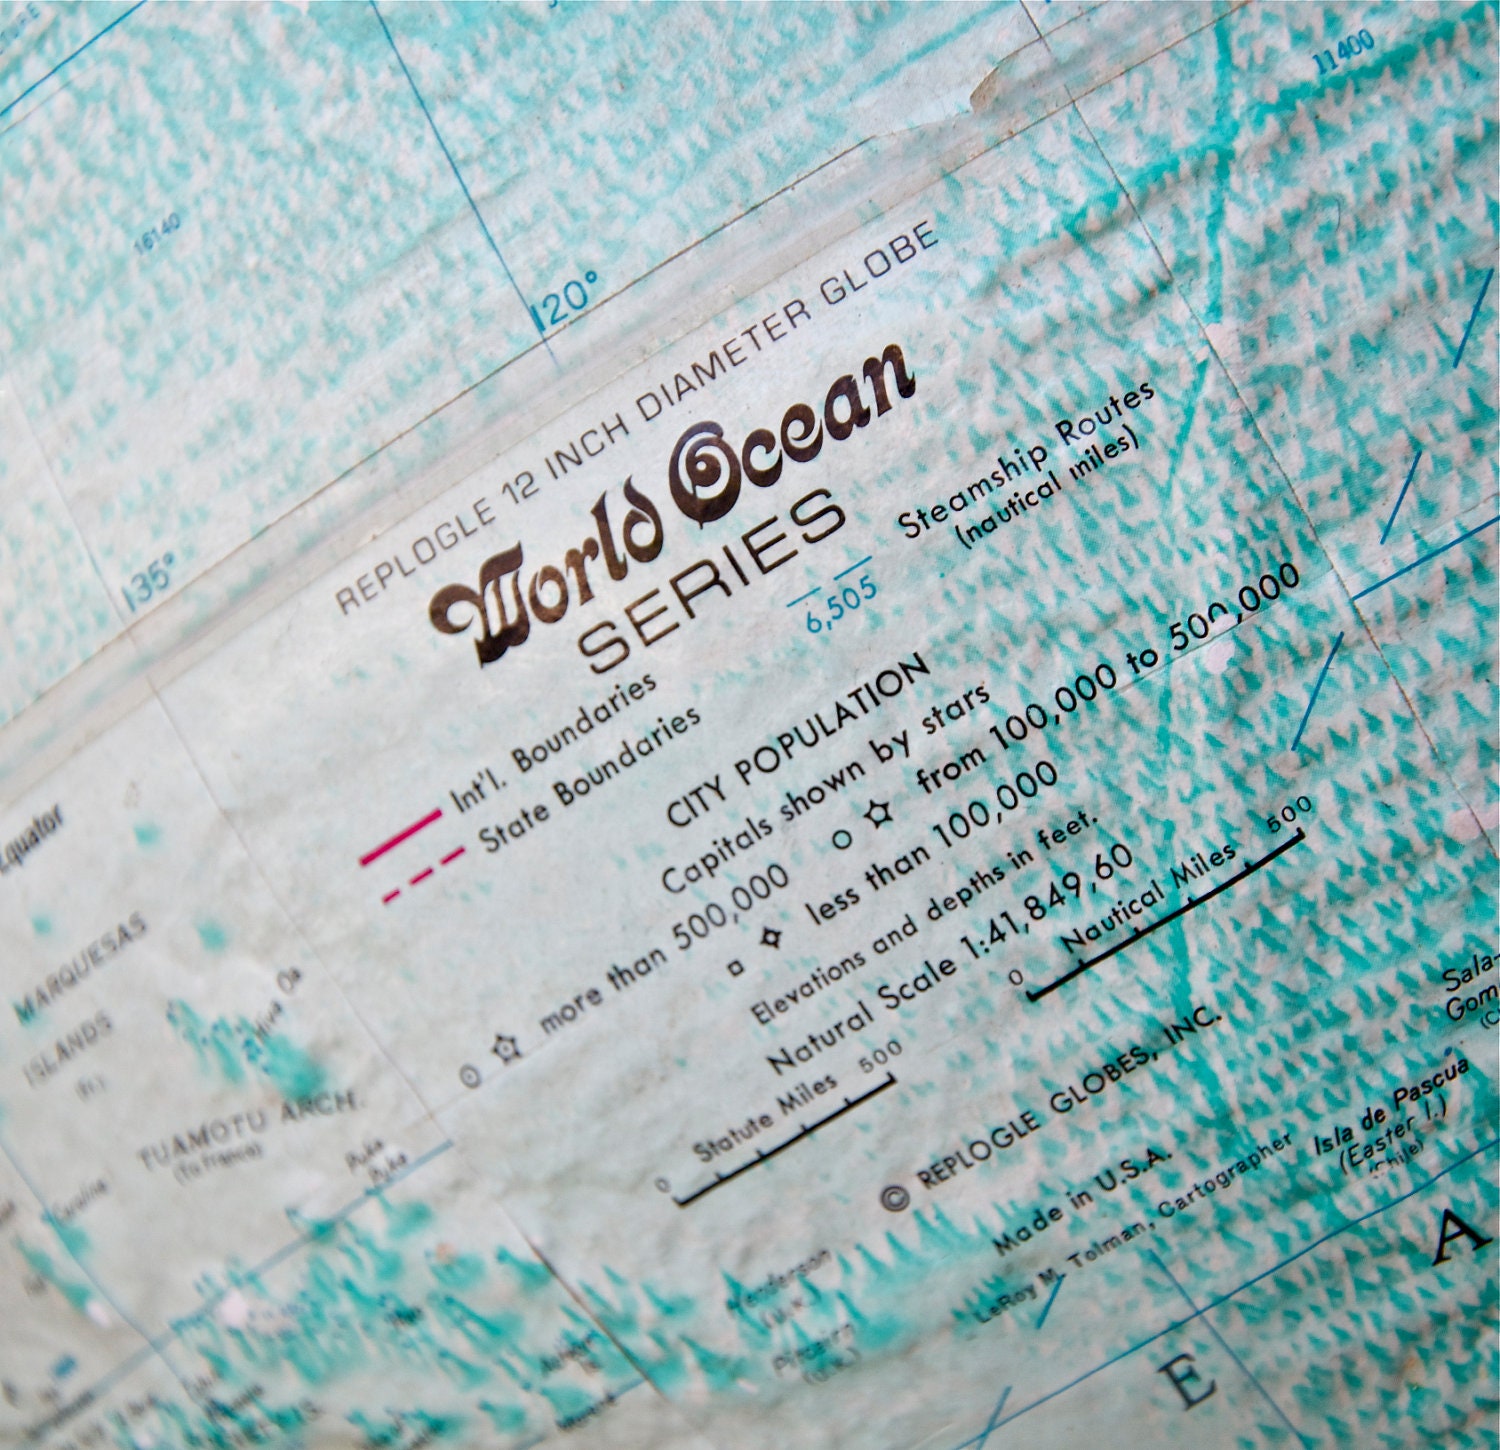 11400
16140
120°
135°
REPLOGLE 12 INCH DIAMETER GLOBE
World Ocean
SERIES
Int'l. Boundaries
State Boundaries
6,505
Steamship Routes
(nautical miles)
CITY POPULATION
Capitals shown by stars
more than 500,000
from 100,000 to 500,000
less than 100,000
Elevations and depths in feet.
Natural Scale 1:41,849,60
Statute Miles
0 500
Nautical Miles
0 500
© REPLOGLE GLOBES, INC.
Made in U.S.A.
LeRoy M. Tolman, Cartographer
Equator
MARQUESAS
ISLANDS
(Fr.)
Hiva Oa
TUAMOTU ARCH.
(To France)
Puka
Puka
Caroline
Henderson
(U.K.)
Pitcairn
(U.K.)
Sala-
Gom
Isla de Pascua
(Easter I.)
(Chile)
E
A